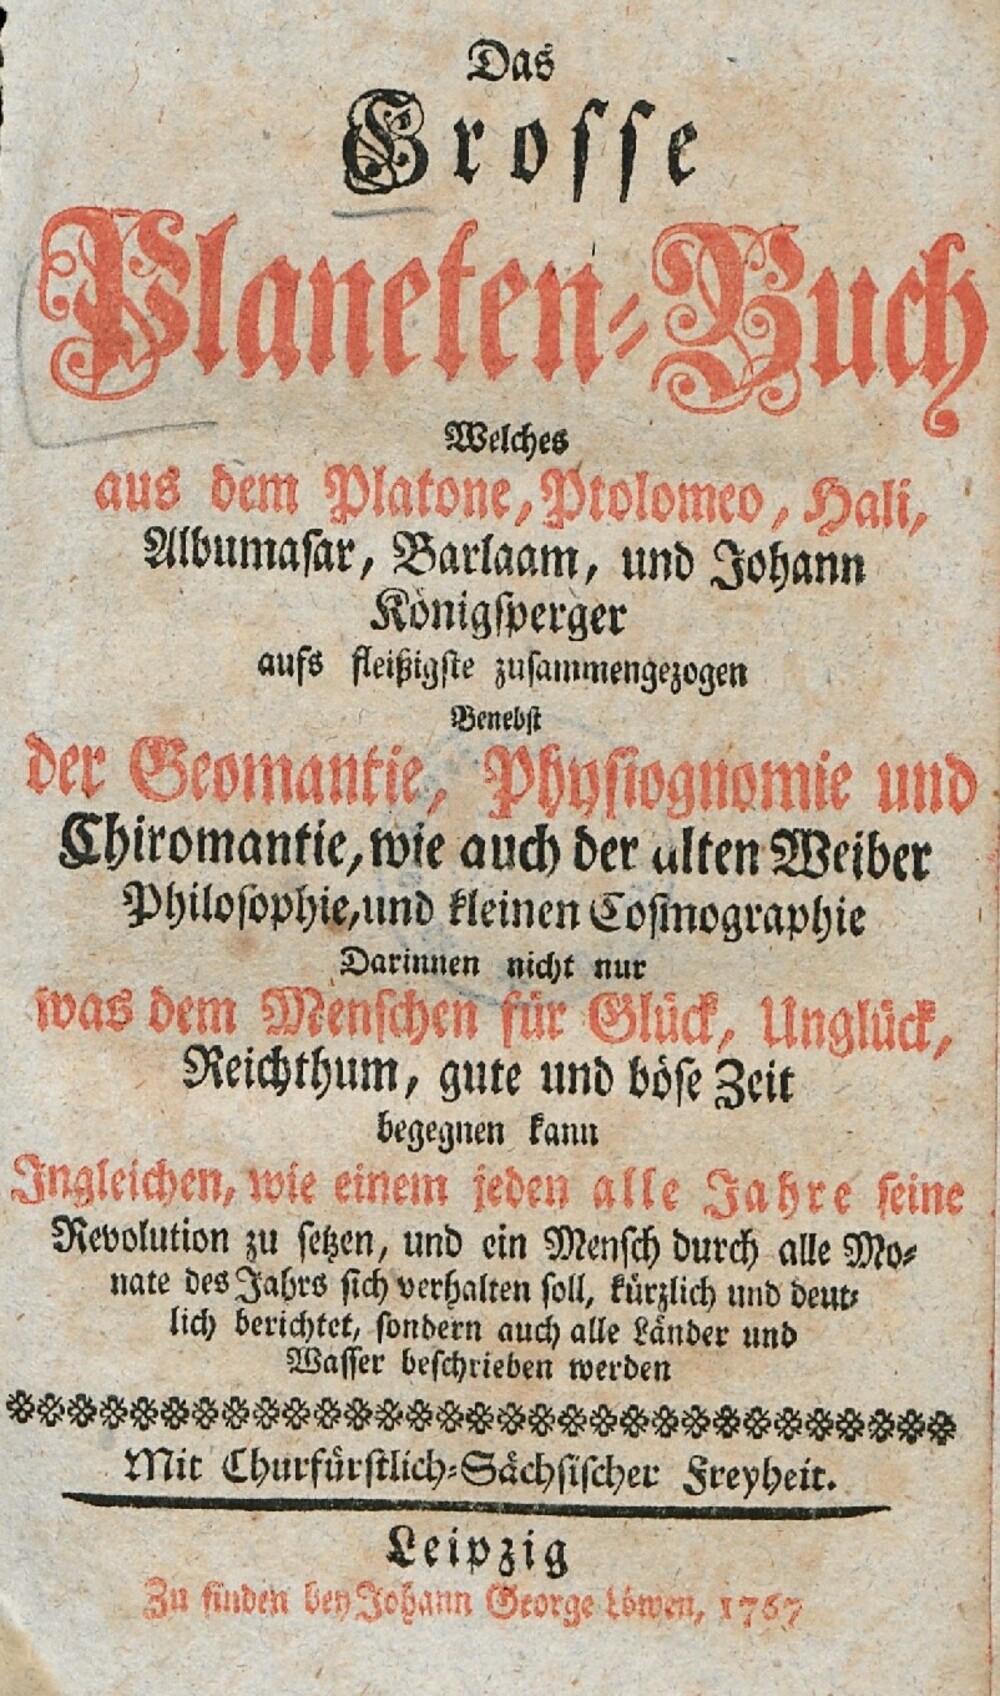 Das
Grosse
Planeten-Buch
Welches
aus dem Platone, Ptolomeo, Hali,
Albumasar, Barlaam, und Johann
Königsperger
aufs fleißigste zusammengezogen
Benebst
der Geomantie, Physiognomie und
Chiromantie, wie auch der alten Weiber
Philosophie, und kleinen Cosmographie
Darinnen nicht nur
was dem Menschen für Glück, Unglück,
Reichthum, gute und böse Zeit
begegnen kann
Ingleichen, wie einem jeden alle Jahre seine
Revolution zu setzen, und ein Mensch durch alle Mo-
nate des Jahrs sich verhalten soll, kürzlich und deut-
lich berichtet, sondern auch alle Länder und
Wasser beschrieben werden
Mit Churfürstlich-Sächsischer Freyheit.
Leipzig
Zu finden bey Johann George Löwen, 1767